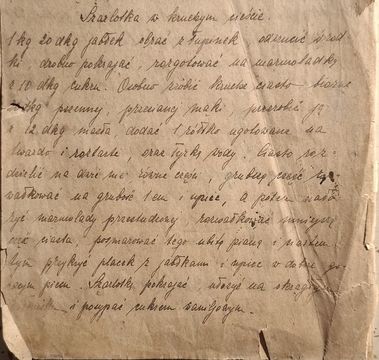 Szarlotka w kruchym cieście.
1 kg 20 dkg jabłek obrać z łupinek odrzucić środ
ki drobno pokrajać, rozgotować na marmoladkę
z 10 dkg cukru. Osobno zrobić kruche ciasto biorąc
kg pszennej, przesianej mąki, przerobić ją
z 12 dkg masła, dodać 1 żółtko ugotowane na
twardo i roztarte, oraz łyżkę wody. Ciasto roz
dzielić na dwie nie równe części, grubszą część
wałkować na grubość 1 cm i upiec, a potem
żyć marmolady przestudzonej rozwałkować mniejszą
część ciasta, posmarować tego ubitą pianą i
tym przykryć placek z jabłkami i upiec w dobrze go
rącym piecu. Szarlotkę pokrajać, ułożyć na okrągłym
i posypać cukrem waniljowym.